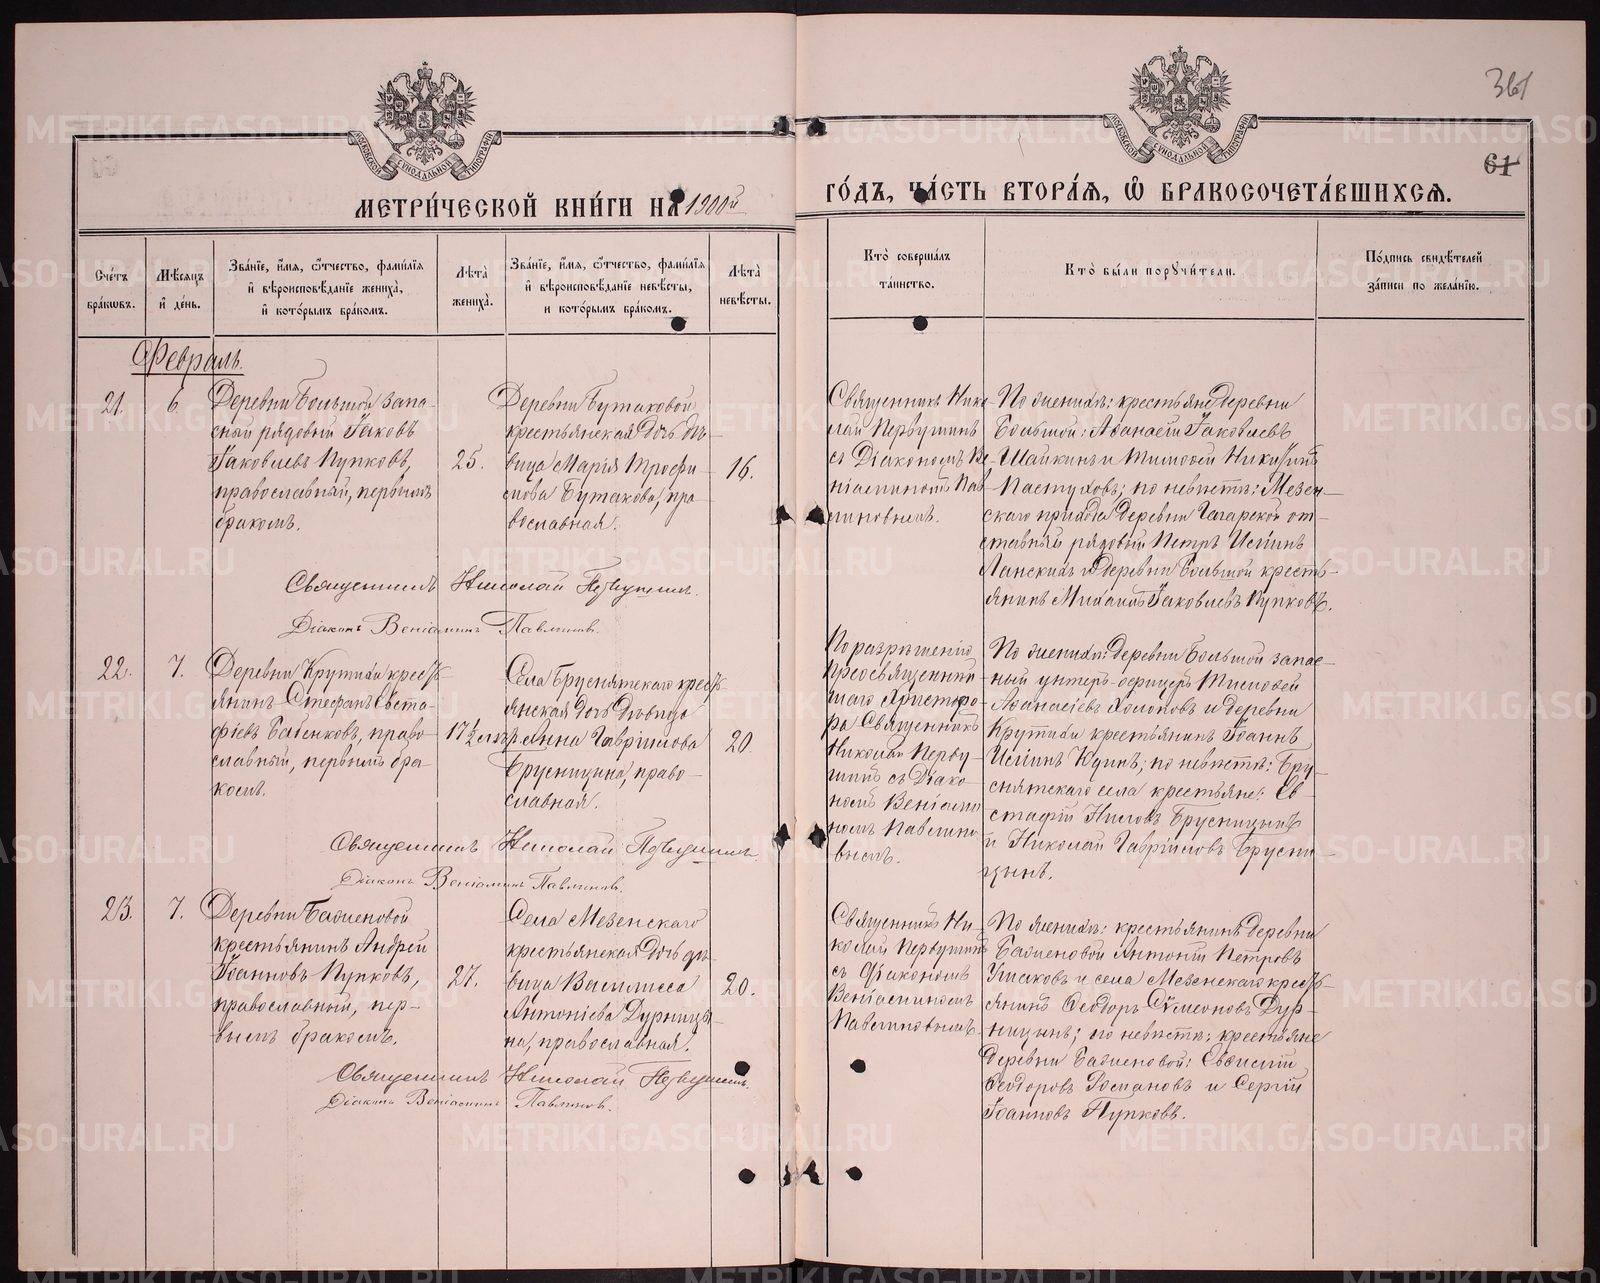 361
61
МЕТРИ́ЧЕСКОЙ КНИ́ГИ НА 1900й
ГО́ДЪ, ЧА́СТЬ ВТОРА́Я, Ѽ БРАКОСОЧЕТА́ВШИХСЯ.
Сче́тъ
бра́кѡвъ.
Мѣ́сяцъ
и҆ де́нь.
Зва́нїе, и҆́мя, ѻ҆́тчество, фами́лїя
и҆ вѣроисповѣ́данїе жениха̀,
и҆ кото́рымъ бра́комъ.
Лѣта̀
жениха̀.
Зва́нїе, и҆́мя, ѻ҆́тчество, фами́лїя
и҆ вѣроисповѣ́данїе невѣ́сты,
и кото́рымъ бра́комъ.
Лѣта̀
невѣ́сты.
Кто̀ соверша́лъ
та́инство.
Кто̀ бы́ли порꙋчи́тели.
По́дпись свидѣ́телей
за́писи по жела́нїю.
Февраль.
21.
6
Деревни Большой запа-
сный рядовый Іаковъ
Іаковлевъ Пупковъ,
православный, первымъ
бракомъ.
25.
Деревни Бутаковой
крестьянская дочь дѣ-
вица Марія Трофи-
мова Бутакова, пра-
вославная.
16.
Священникъ Нико-
лай Первушинъ
съ Діакономъ Ве-
ніаминомъ Пав-
линовымъ.
По женихѣ: крестьяне деревни
Большой: Афанасій Іаковлевъ
Шайкинъ и Тимофей Никитинъ
Пастуховъ; по невѣстѣ: Мезен-
скаго прихода деревни Гагарской от-
ставный рядовый Петръ Исиинъ
Ланскихъ и деревни Большой кресть-
янинъ Михаилъ Іаковлевъ Пупковъ.
Священникъ Николай Первушинъ.
Діаконъ Веніаминъ Павлиновъ.
22.
7.
Деревни Крутихи кресть-
янинъ Стефанъ Евста-
фіевъ Бабенковъ, право-
славный, первымъ бра-
комъ.
17½ лѣтъ
Села Бруснятскаго кресть-
янская дочь дѣвица
Анна Гавріилова
Брусницына, право-
славная.
20
По разрѣшенію
Преосвященнѣй-
шаго Христофо-
ра Священникъ
Николай Перву-
шинъ съ Діако-
номъ Веніами-
номъ Павлино-
вымъ.
По женихѣ: деревни Большой запас-
ный унтеръ-офицеръ Тимофей
Афанасіевъ Холоповъ и деревни
Крутихи крестьянинъ Іоаннъ
Исиинъ Кузинъ; по невѣстѣ: Бру-
снятскаго села крестьяне: Ев-
стафій Ниловъ Брусницынъ
и Николай Гавріиловъ Брусни-
цынъ.
Священникъ Николай Первушинъ.
Діаконъ Веніаминъ Павлиновъ.
23.
7.
Деревни Баженовой
крестьянинъ Андрей
Іоанновъ Пупковъ,
православный, пер-
вымъ бракомъ.
27.
Села Мезенскаго
крестьянская дочь дѣ-
вица Василисса
Антоніева Дурницы-
на, православная.
20.
Священникъ Ни-
колай Первушинъ
съ Діакономъ
Веніаминомъ
Павлиновымъ.
По женихѣ: крестьянинъ деревни
Баженовой Антоній Петровъ
Ушаковъ и села Мезенскаго кресть-
янинъ Ѳеодоръ Сѵмеоновъ Дур-
ницынъ; по невѣстѣ: крестьяне
деревни Баженовой: Евсисій
Ѳеодоровъ Романовъ и Сергій
Іоанновъ Пупковъ.
Священникъ Николай Первушинъ.
Діаконъ Веніаминъ Павлиновъ.